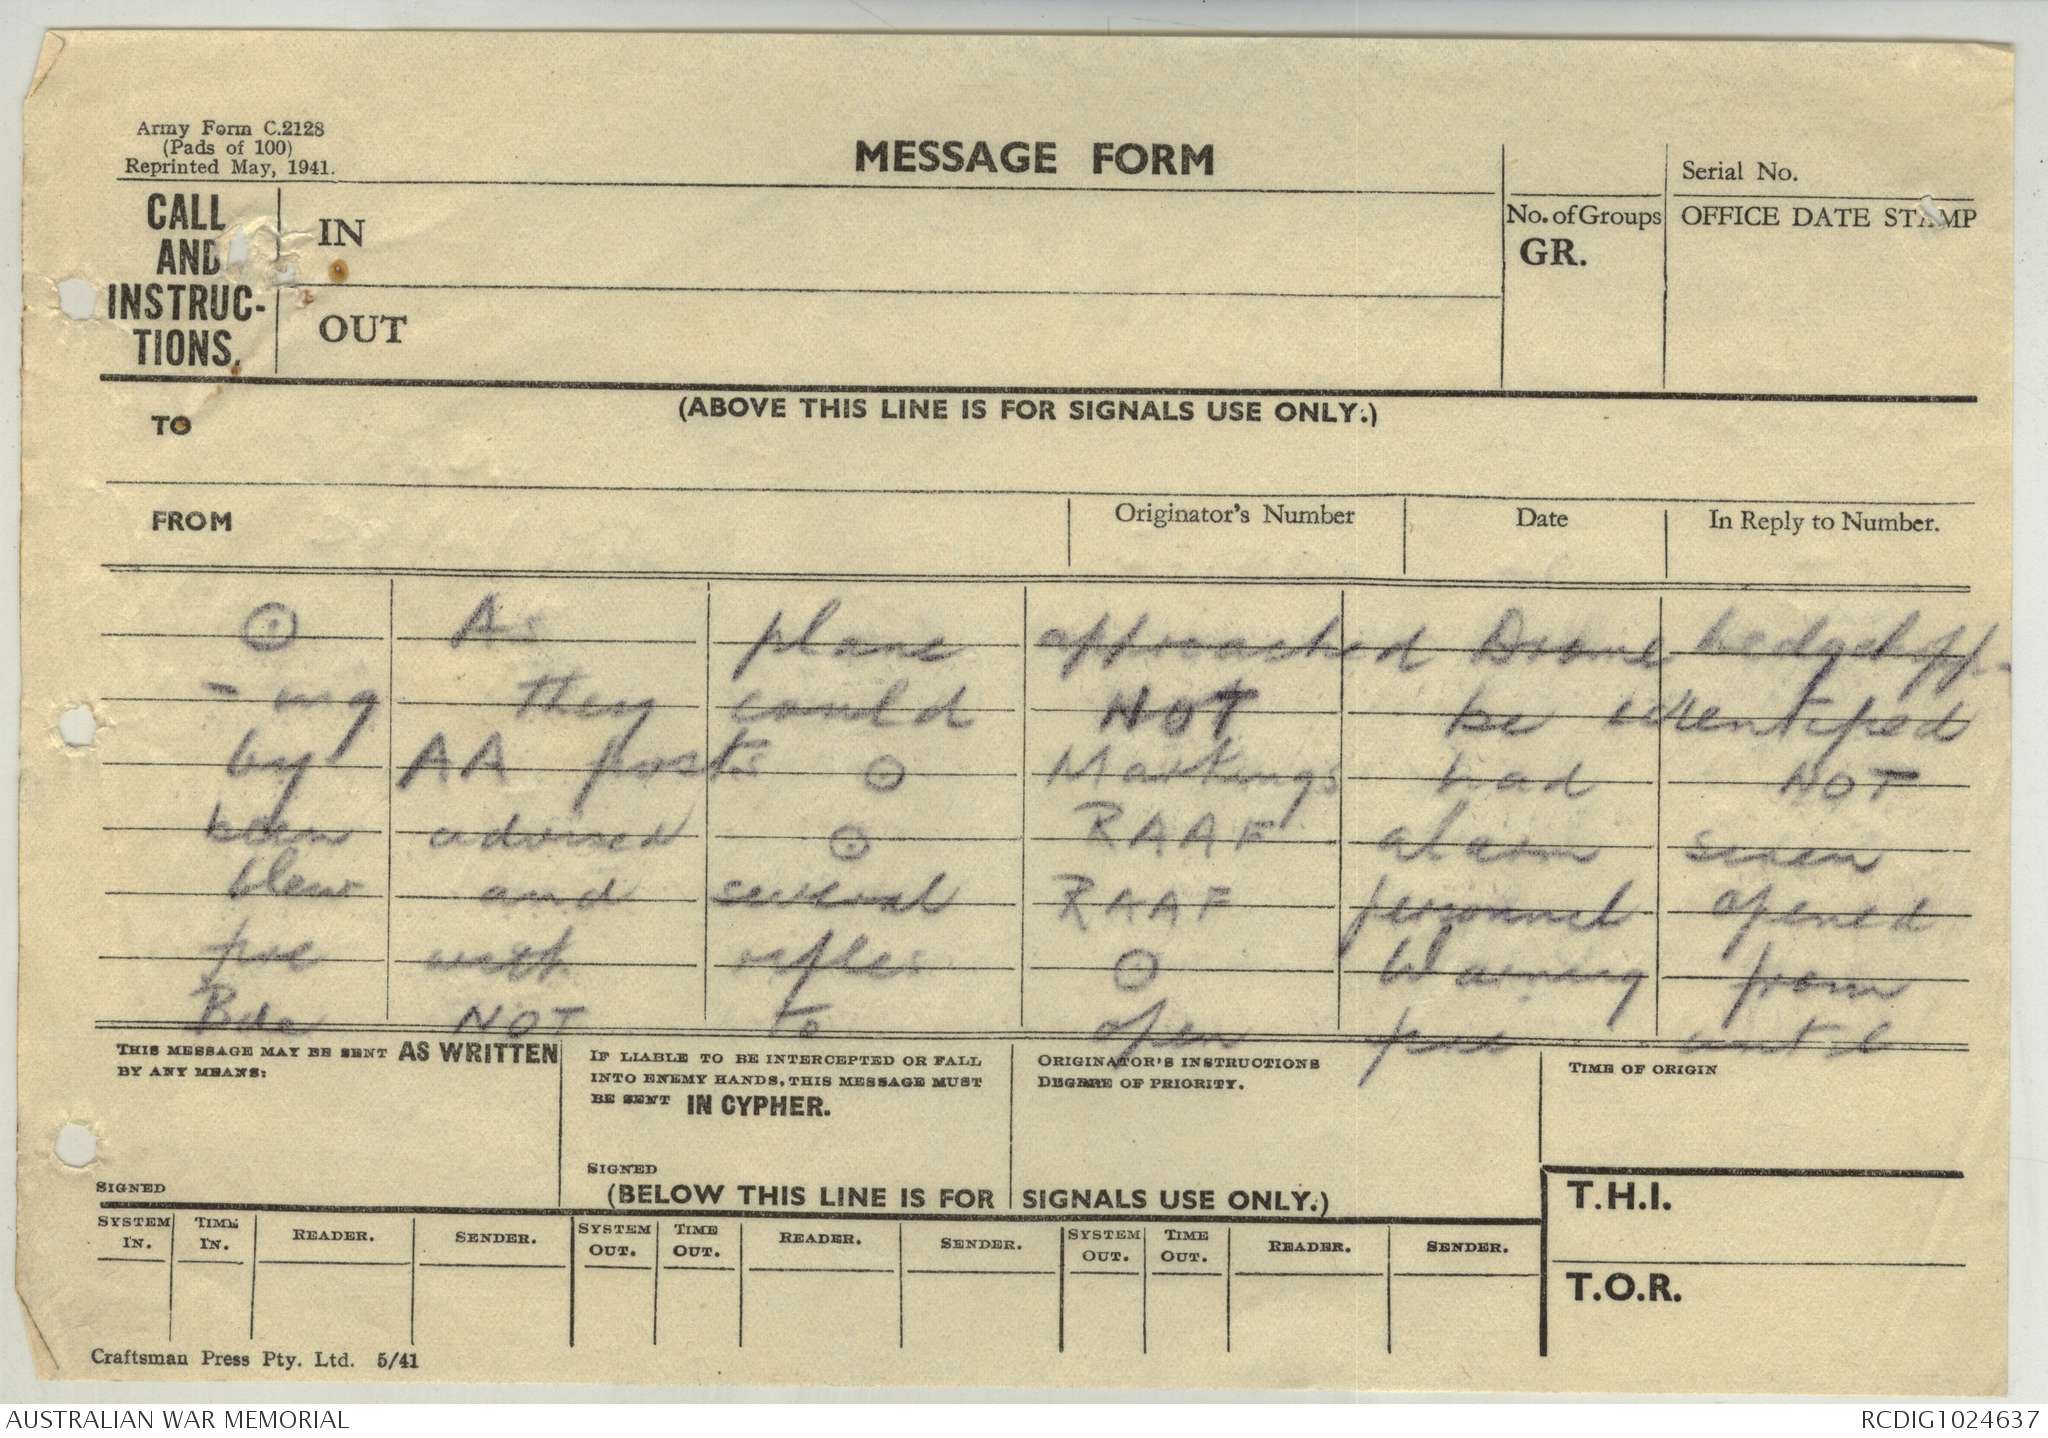 Army Form C.2128
(Pads of 100)
Reprinted May, 1941.
MESSAGE FORM
Serial No.
CALL
AND
INSTRUC-
TIONS.
IN
OUT
No. of Groups
GR.
OFFICE DATE STAMP
(ABOVE THIS LINE IS FOR SIGNALS USE ONLY.)
TO
FROM
Originator's Number
Date
In Reply to Number.
⊙ As plane approached Drome hedgehopp-
-ing they could NOT be identified
by AA posts ⊙ Markings had NOT
been advised ⊙ RAAF alarm siren
blew and several RAAF personnel opened
fire with rifles ⊙ Warning from
Bde NOT to open fire until
THIS MESSAGE MAY BE SENT AS WRITTEN
BY ANY MEANS:
SIGNED
IF LIABLE TO BE INTERCEPTED OR FALL
INTO ENEMY HANDS, THIS MESSAGE MUST
BE SENT IN CYPHER.
SIGNED
ORIGINATOR'S INSTRUCTIONS
DEGREE OF PRIORITY.
TIME OF ORIGIN
(BELOW THIS LINE IS FOR SIGNALS USE ONLY.)
T.H.I.
T.O.R.
SYSTEM IN. TIME IN. READER. SENDER. SYSTEM OUT. TIME OUT. READER. SENDER. SYSTEM OUT. TIME OUT. READER. SENDER.
Craftsman Press Pty. Ltd. 5/41
AUSTRALIAN WAR MEMORIAL
RCDIG1024637